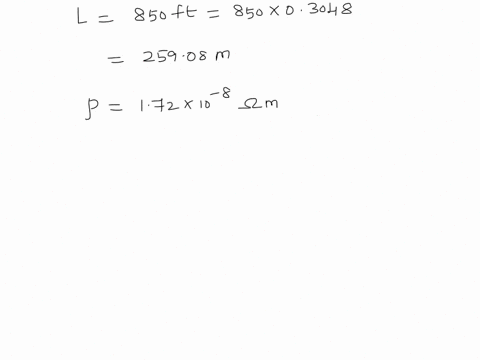 L = 850 ft = 850 × 0.3048
= 259.08 m
ρ = 1.72 × 10⁻⁸ Ωm